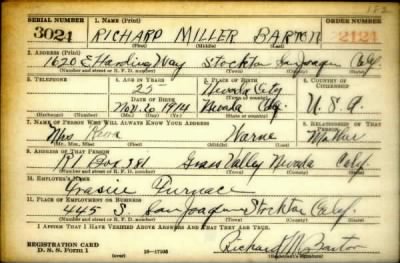 182
SERIAL NUMBER 1. NAME (Print) ORDER NUMBER
3024 RICHARD MILLER BARTON 2121
(First) (Middle) (Last)
2. ADDRESS (Print)
1620 E Harding Way Stockton San Joaquin Calif.
(Number and street or R. F. D. number) (Town) (County) (State)
3. TELEPHONE 4. AGE IN YEARS 5. PLACE OF BIRTH 6. COUNTRY OF CITIZENSHIP
25 Nevada City
DATE OF BIRTH
Nov. 20 1914 Nevada Calif. U. S. A.
(Exchange) (Number) (Mo.) (Day) (Yr.) (State or country)
7. NAME OF PERSON WHO WILL ALWAYS KNOW YOUR ADDRESS 8. RELATIONSHIP OF THAT PERSON
Mrs Mother
(Mr., Mrs., Miss) (First) (Middle) (Last)
9. ADDRESS OF THAT PERSON
R1 Box 381 Grass Valley Nevada Calif.
(Number and street or R. F. D. number) (Town) (County) (State)
10. EMPLOYER'S NAME
Furnace
11. PLACE OF EMPLOYMENT OR BUSINESS
445 S. San Joaquin Stockton Calif
(Number and street or R. F. D. number) (Town) (County) (State)
I AFFIRM THAT I HAVE VERIFIED ABOVE ANSWERS AND THAT THEY ARE TRUE.
REGISTRATION CARD
D. S. S. Form 1 (over) 16—17105 Richard M. Barton
(Registrant's signature)